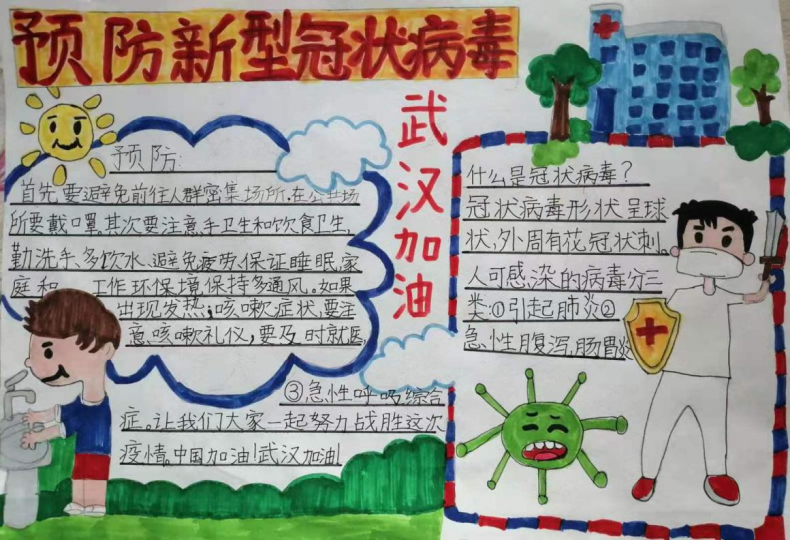 预防新型冠状病毒
武汉加油
预防:
首先,要避免前往人群密集场所.在公共场
所要戴口罩,其次要注意,手卫生和饮食卫生,
勤洗手、多饮水、避免疲劳,保证睡眠,家
庭和 工作环保境,保持多通风。如果
出现发热;咳嗽症状,要注
意,咳嗽礼仪,要及时就医,
什么是冠状病毒?
冠状病毒形状呈球
状,外周有花冠状刺。
人可感染的病毒分三
类:①引起肺炎②
急性腹泻,肠胃炎
③急性呼吸综合
症。让我们大家一起努力战胜这次
疫情。中国加油!武汉加油!